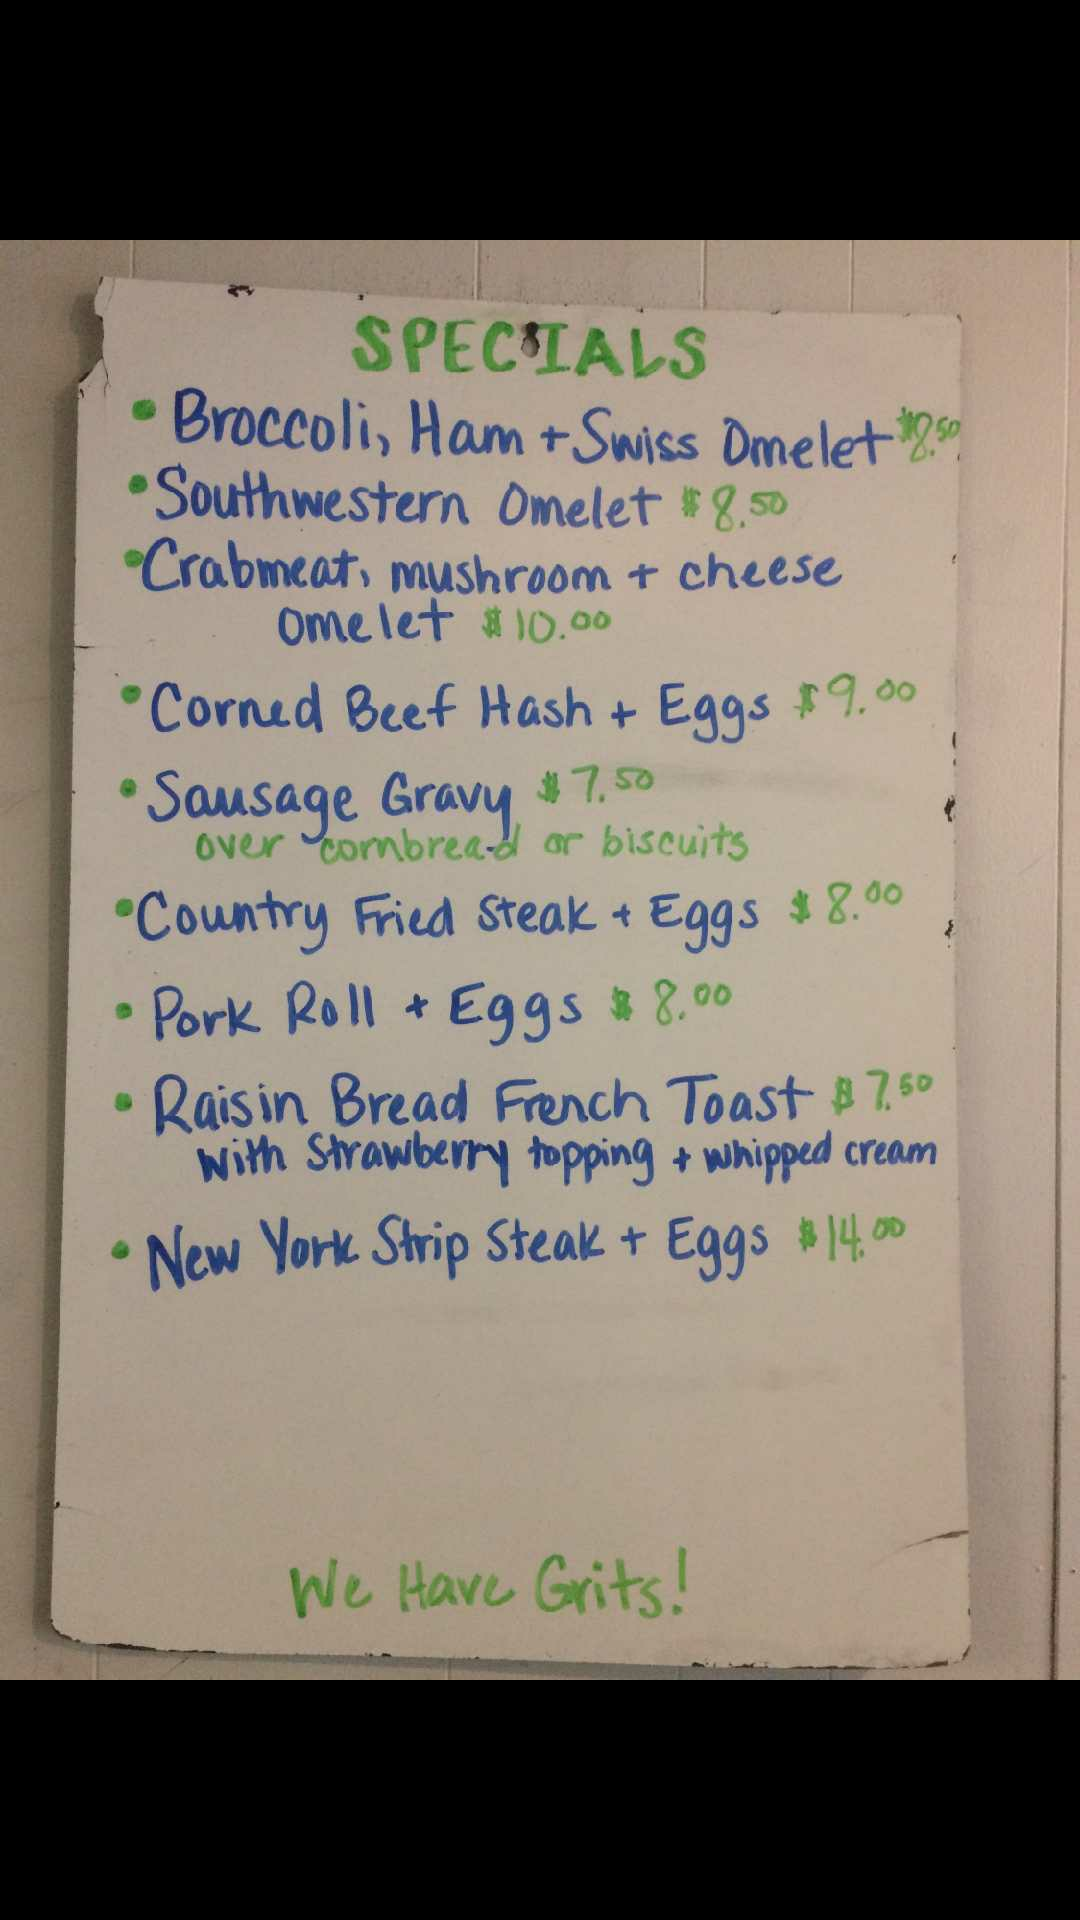 SPECIALS
• Broccoli, Ham + Swiss Omelet $8.50
• Southwestern Omelet $8.50
• Crabmeat, mushroom + cheese
omelet $10.00
• Corned Beef Hash + Eggs $9.00
• Sausage Gravy $7.50
over cornbread or biscuits
• Country Fried Steak + Eggs $8.00
• Pork Roll + Eggs $8.00
• Raisin Bread French Toast $7.50
with Strawberry topping + whipped cream
• New York Strip Steak + Eggs $14.00
We Have Grits!